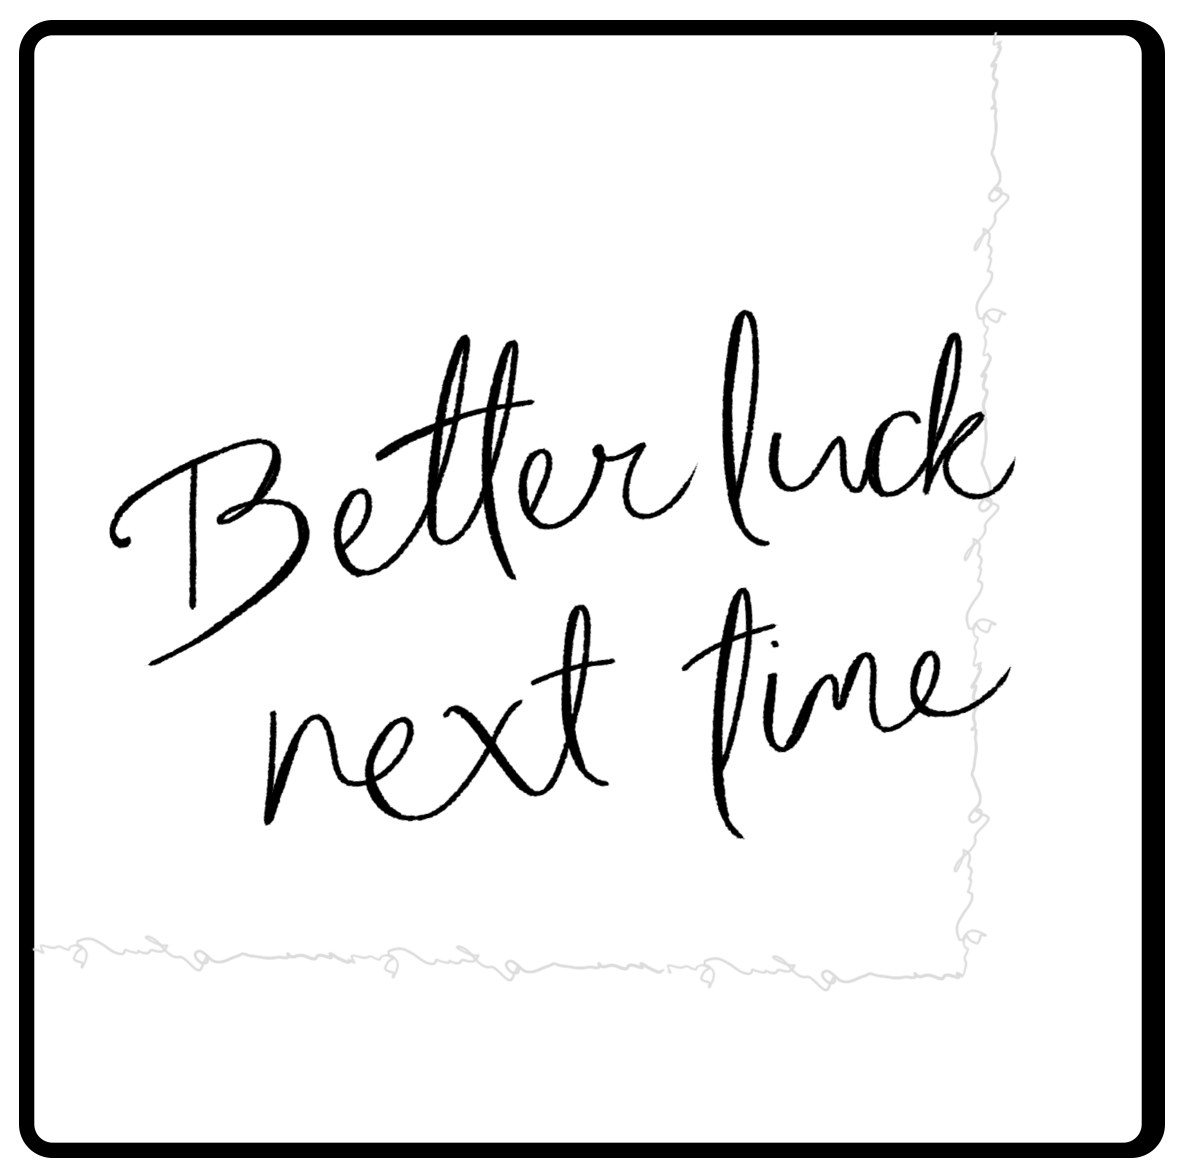 Better luck
next time